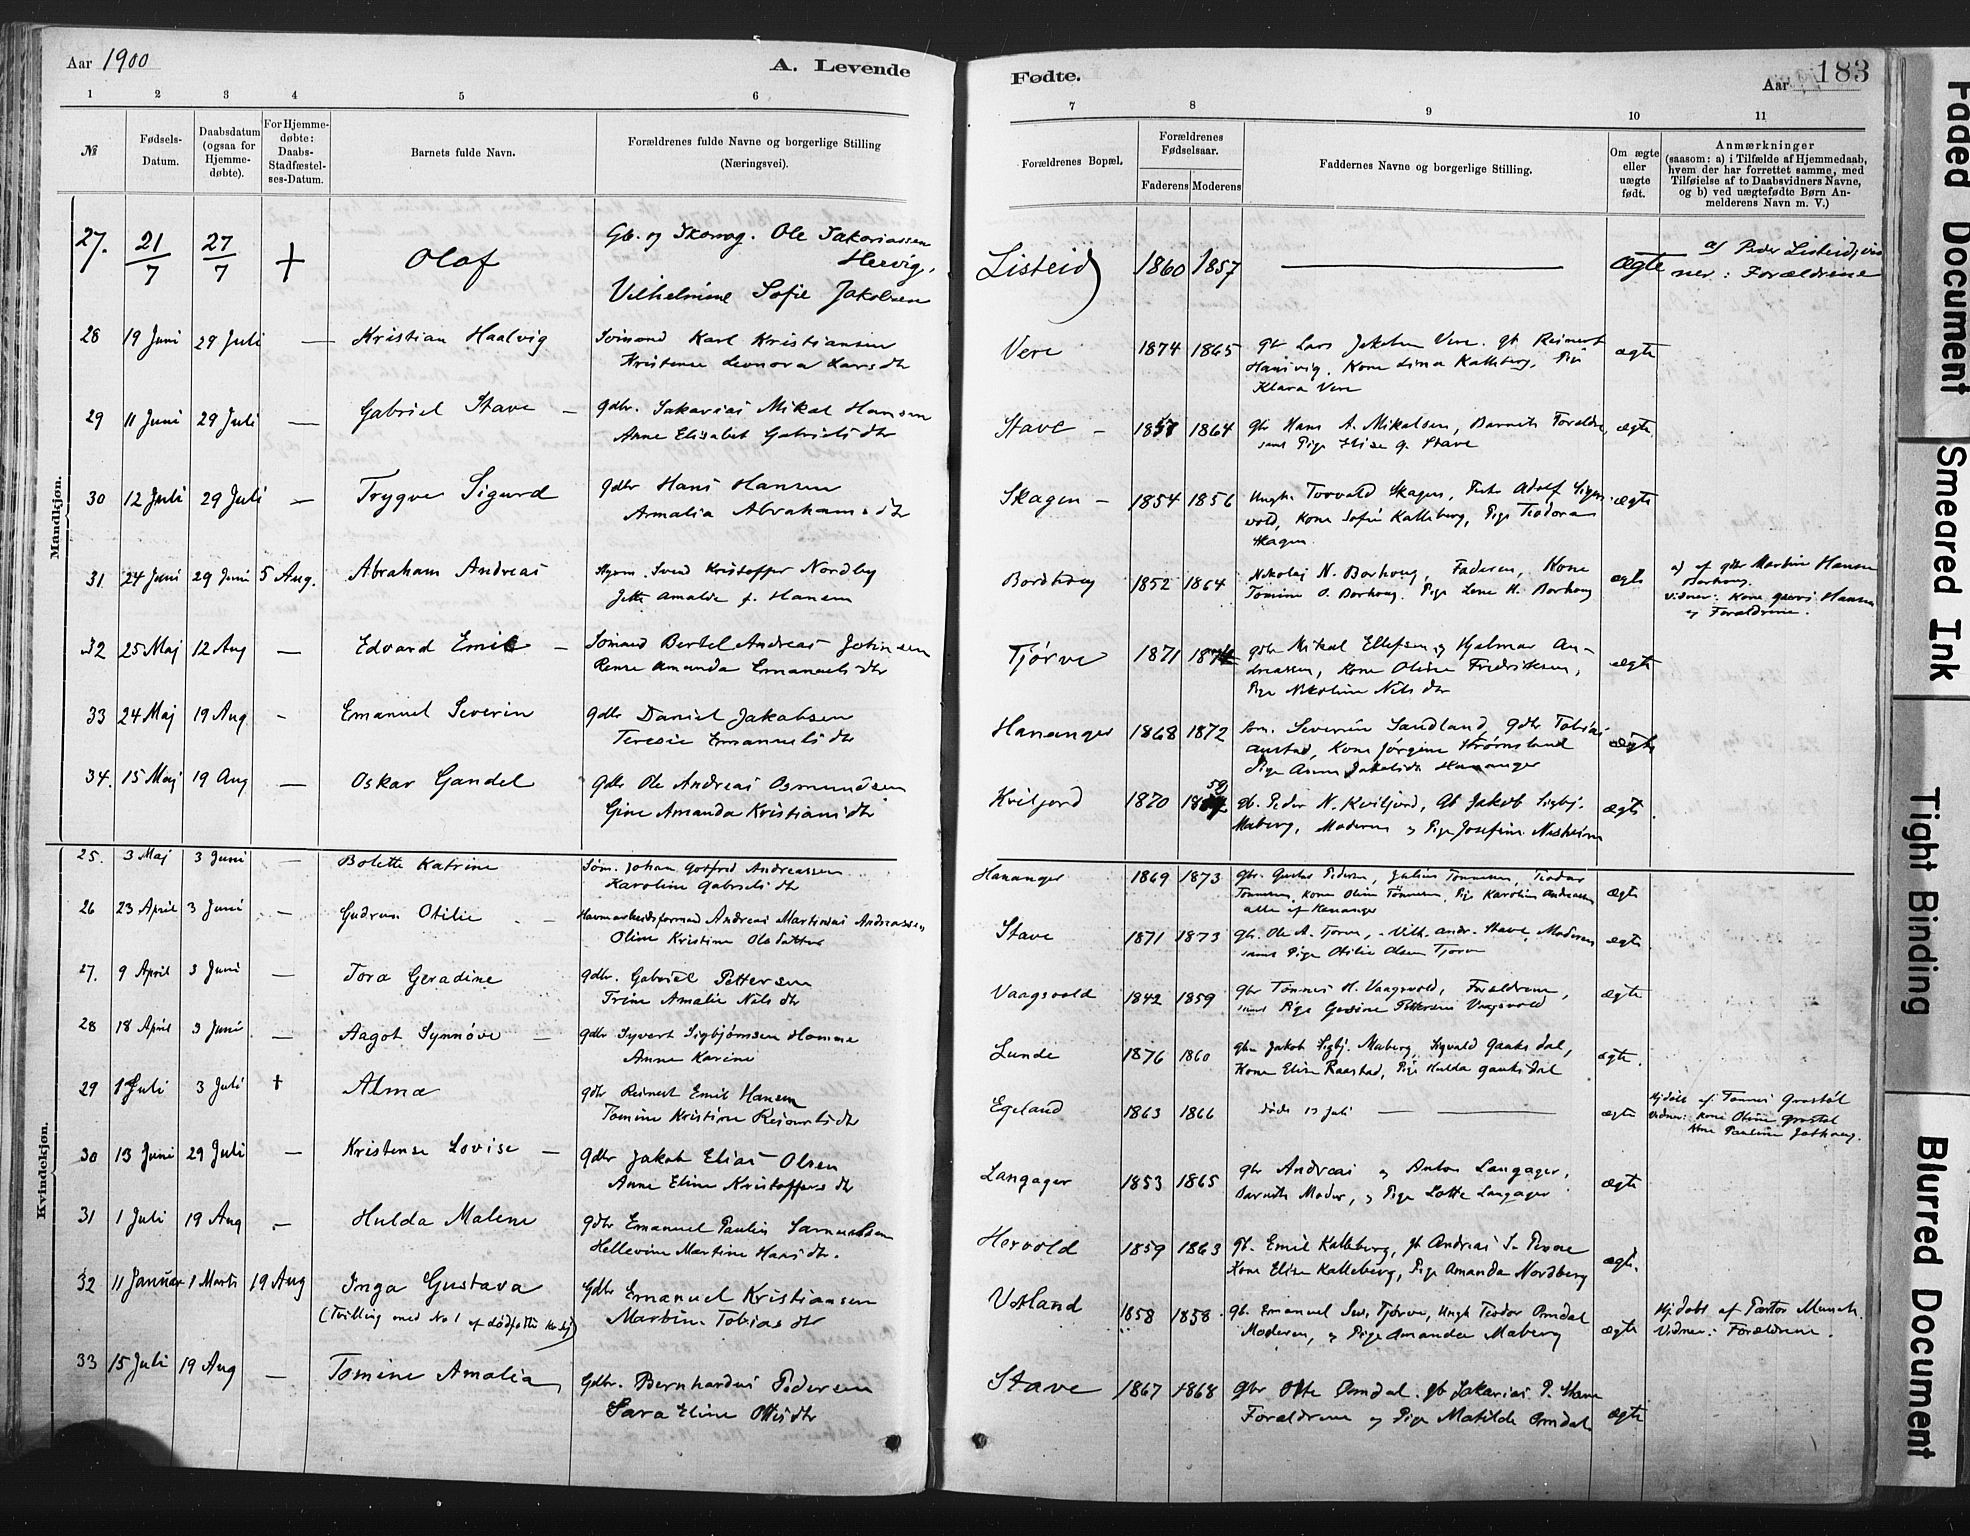 Aar 1900
A. Levende
Fødte.
Aar
183
1 2 3 4 5 6
7 8 9 10 11
№
Fødsels-
Datum.
Daabsdatum
(ogsaa for
Hjemme-
døbte).
For Hjemme-
døbte:
Daabs-
Stadfæstel-
ses-Datum.
Barnets fulde Navn.
Forældrenes fulde Navne og borgerlige Stilling
(Næringsvei).
Forældrenes Bopæl.
Forældrenes
Fødselsaar.
Faderens
Moderens
Faddernes Navne og borgerlige Stilling.
Om ægte
eller
uægte
født.
Anmærkninger
(saasom: a) i Tilfælde af Hjemmedaab,
hvem der har forrettet samme, med
Tilføielse af to Daabsvidners Navne,
og b) ved uægtefødte Børn An-
melderens Navn m. V.)
Mandkjøn.
27. 21/7 27/7 + Olaf
Gb. og Skomag. Ole Sakariassen
Hervig,
Vilhelmine Sofie Jakobsen
Listeid 1860 1857 — ægte
a) Peder Listeid, vid
ner: Forældrene
28 19 Juni 29 Juli — Kristian Haalvig
Sømand Karl Kristiansen
Kristense Leonora Larsdtr
Vere 1874 1865
gb Lars Jakobsen Vere. gb Reinert
Hansvig, Kone Lina Kalleberg, Pige
Klara Vere
ægte
29 11 Juni 29 Juli — Gabriel Stave —
gdbr. Sakarias Mikal Hansen
Anne Elisabet Gabrielsdtr
Stave — 1857 1864
gb Hans A. Mikalsen, Barnets Foreldre,
samt Pige Elise G. Stave
ægte
30 12 Juli 29 Juli — Trygve Sigurd
gdbr Hans Hansen
Amalia Abrahamsdtr
Skagen — 1854 1856
Ungk. Torvald Skagen, Adolf Sigers
vold, Kone Sofie Kalleberg, Pige Teodora
Skagen
ægte
31 24 Juni 29 Juni 5 Aug. Abraham Andreas
Svend Kristoffer Nordby
Jette Amalde f. Hansen
Borhoug 1852 1864
Nikolai N. Borhoug, Faderen, Kone
Tomine O. Borhoug. Pige Lene H. Borhoug
ægte
a) af gdbr Martin Hansen
Borhoug.
Vidner: Kone Hansen
og Forældrene.
32 25 Maj 12 Aug — Edvard Emil —
Sømand Bertel Andreas Johnsen
Rense Amanda Emanuelsdtr
Tjørve 1871 1874
gdbr Mikal Ellefsen og Hjalmar An-
dreassen, Kone Oline Fredriksen,
Pige Nikoline Nilsdtr
ægte
33 24 Maj 19 Aug - Emanuel Severin
gdbr Daniel Jakobsen
Teresie Emanuelsdtr
Hananger 1868 1872
Søm. Severin Sandland, gdbr Tobias
Austad, Kone Jørgine Strømsland
Pige Hananger
ægte
34. 15 Maj 19 Aug — Oskar Gandel
gdbr Ole Andreas Osmundsen
Gine Amanda Kristiansdtr
Kviljord 1870 1859
gb. Peder N. Kviljord, Gb Jakob Sigbj.
Maberg, Moderen og Pige Josefine Nesheim
ægte
Kvindekjøn.
25. 3 Maj 3 Juni — Bolette Katrine
Søm. Johan Gotfred Andreassen
Karoline Gabrielsdtr
Hananger 1869 1873
gbr. Gustav Pedersen, Julius Tønnesen, Teodor
Tønnesen, Kone Oline Tønnesen, Pige Karoline Andreassen
alle af Hananger
ægte
26 23 April 3 Juni — Gudrun Otilie
Havnearbeidsformand Andreas Martinius Andreassen
Oline Kristine Olsdatter
Stave 1871 1873
gb. Ole A. Tjorve, Vilh. Andr. Stave, Moderen
samt Pige Otilie Olsen Tjorve
ægte
27. 9 April 3 Juni — Tora Geradine
gdbr. Gabriel Pettersen
Trine Amalie Nilsdtr
Vaagsvold 1842 1859
gbr Tønnes H. Vaagsvold, Forældrene,
samt Pige Gesine Pettersen Vaagsvold
ægte
28 18 April 3 Juni — Aagot Synnøve —
gdbr Syvert Sigbjørnsen Homme
Anne Karine
Lunde 1876 1860
gbr Jakob Sigbj. Maberg, Sigvald Gauksdal,
Kone Elise Raastad, Pige Hulda Gauksdal
ægte.
29 1 Juli 3 Juli + Alma
gdbr Reinert Emil Hansen
Tomine Kristine Reinertsdtr
Egeland 1863 1866
døde 17 Juli —
ægte
Hj.døbt af Tønnes Grostøl
Vidner: Kone Oline Grostøl
Kone Pauline
30 13 Juni 29 Juli — Kristense Lovise —
gdbr Jakob Elias Olsen
Anne Eline Kristoffersdtr
Langager 1853 1865
gbr Andreas og Anton Langager,
Barnets Moder, og Pige Lotte Langager
ægte
31 1 Juli 19 Aug — Hulda Malene
gdbr Emanuel Paulin Samuelsen
Hellevine Martine Hansdtr.
Hervold 1859 1863
gb. Emil Kalleberg, gb Andreas S.
Kone Elise Kalleberg, Pige Amanda Nordberg
ægte.
32 11 Januar 1 Marts 19 Aug Inga Gustava
(Tvilling med No 1 af dødfødte)
Gdbr Emanuel Kristiansen
Martine Tobiasdtr
Vatland 1858 1858
gb. Emanuel Sev. Tjørve, Ungk Teodor Omdal
Moderen, og Pige Amanda Maberg
ægte
Hj.døbt af Pastor Munch.
Vidner: Forældrene.
33 15 Juli 19 Aug — Tomine Amalia
Gdbr. Bernhardus Pedersen
Sara Eline Ottesdtr
Stave 1867 1868
gbr Otte Omdal. gb Sakarias P. Stave
Forældrene og Pige Matilde Omdal
ægte
Faded Document
Smeared Ink
Tight Binding
Blurred Document